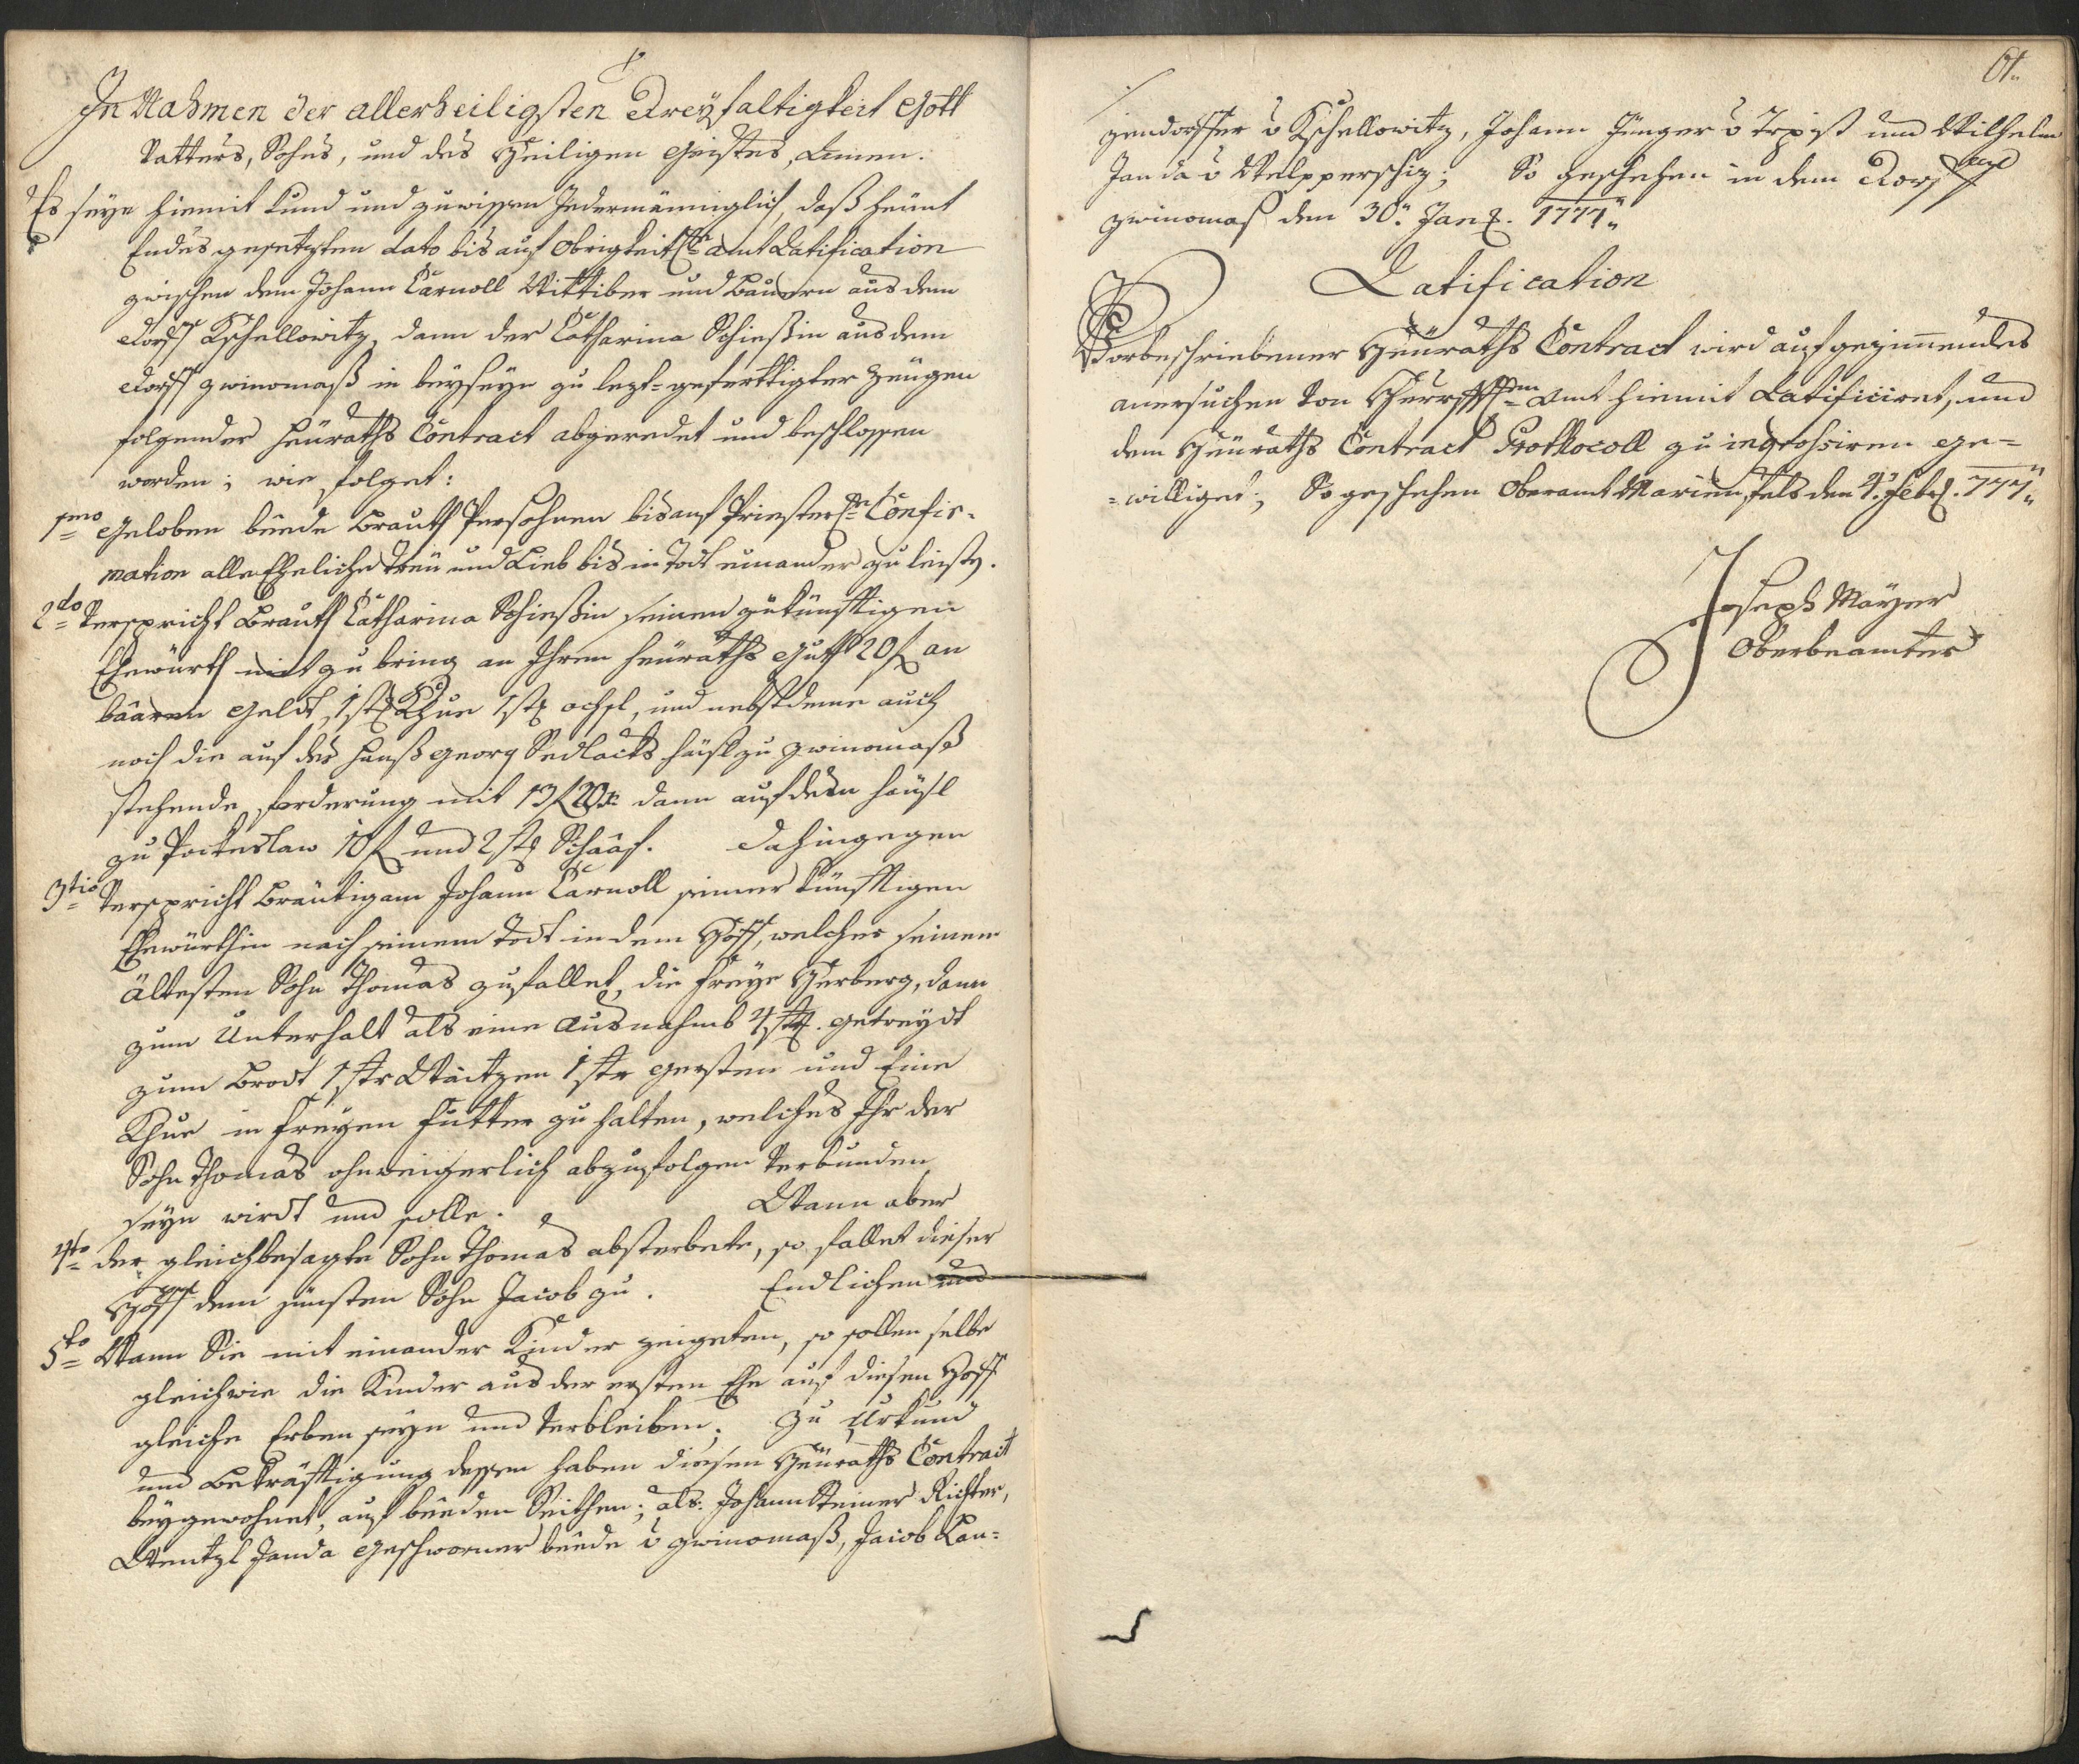 In Nahmen der allerheiligsten Dreyfaltigkeit Gott
Vatters, Sohns, und des Heiligen Geistes, Amen.
Es seye hiemit kund und zuwissen Jedermänniglich, daß heünt
Endes gesetzten dato bis auf Obrigkeitl. amt Ratification
zwischen dem Johann Carnoll Wittiber und Bauern aus dem
Dorff Kschellowitz, dann der Catharina Schießin aus dem
Dorff gwinomaß in beyseyn zu lezt-geferttigter Zeügen
folgender Heüraths Contract abgeredet und beschlossen
worden; wie folget:
1mo Geloben beede Brauth Persohnen bis auf Priesterl. Confir-
mation alle Eheliche treü und Lieb bis in Todt einander zu leist.
2do Verspricht Brauth Catharina Schießin seinem zukünfftigen
Ehewürth mit zu bring an Ihrem Heüraths Guth 20 f an
baaren Geldt, 1 st. Khue 1 st. ochsl, und nebst deme auch
noch die auf des Hanß Georg Sedlacks häusl zu gwinomaß
stehende forderung mit 13 f 20 x dann auf dem häusl
zu Pockeslaw 10 f und 2 st. Schaaf. Dahingegen
3tio Verspricht Bräutigam Johann Carnoll seiner künfftigen
Ehewürthin nach seinem Todt in dem Hoff, welcher seinem
ältesten Sohn Thomas zufallet, die freye Herberg, dann
zum Unterhalt als eine Ausnahmb 4 str. getreydt
zum Brodt 1 str Waitzen 1 str gersten und Eine
Khue in freyen Futter zu halten, welches Ihr der
Sohn Thomas ohnweigerlich abzufolgen Verbunden
seyn wirdt und solle. Wann aber
4to der gleichbesagte Sohn Thomas absterbete, so fallet dieser
Hoff dem jünsten Sohn Jacob zu. Endlichen und
5to Wann Sie mit einander Kinder zeigeten, so sollen selbe
gleichwie die Kinder aus der ersten Ehe auf diesen Hoff
gleiche Erben seyn und Verbleiben; zu Urkund
und Bekräfftigung dessen haben diesen Heüraths Contract
beygewohnet, auf beeden Seithen; als: Johann Steiner Richter,
Wentzl Janda Geschworner beede v gwinomaß, Jacob Lan-
61.
zendorffer v Kschellowitz, Johann Jünger v Trpist und Wilhelm
Janda v Welpperschiz; So geschehen in dem Dorff
gwinomaß den 30. Jan. 1777.
Ratification
Vorbeschriebener Heüraths Contract wird auf gezimmendes
anersuchen von Herrschfftn Amt hiemit Ratificiret, und
dem Heüraths Contract Prothocoll zu ingrossiren ge-
-williget; So geschehen Oberamt Marienfels den 4. Feb. 777.
Joseph Mayer
Oberbeamter